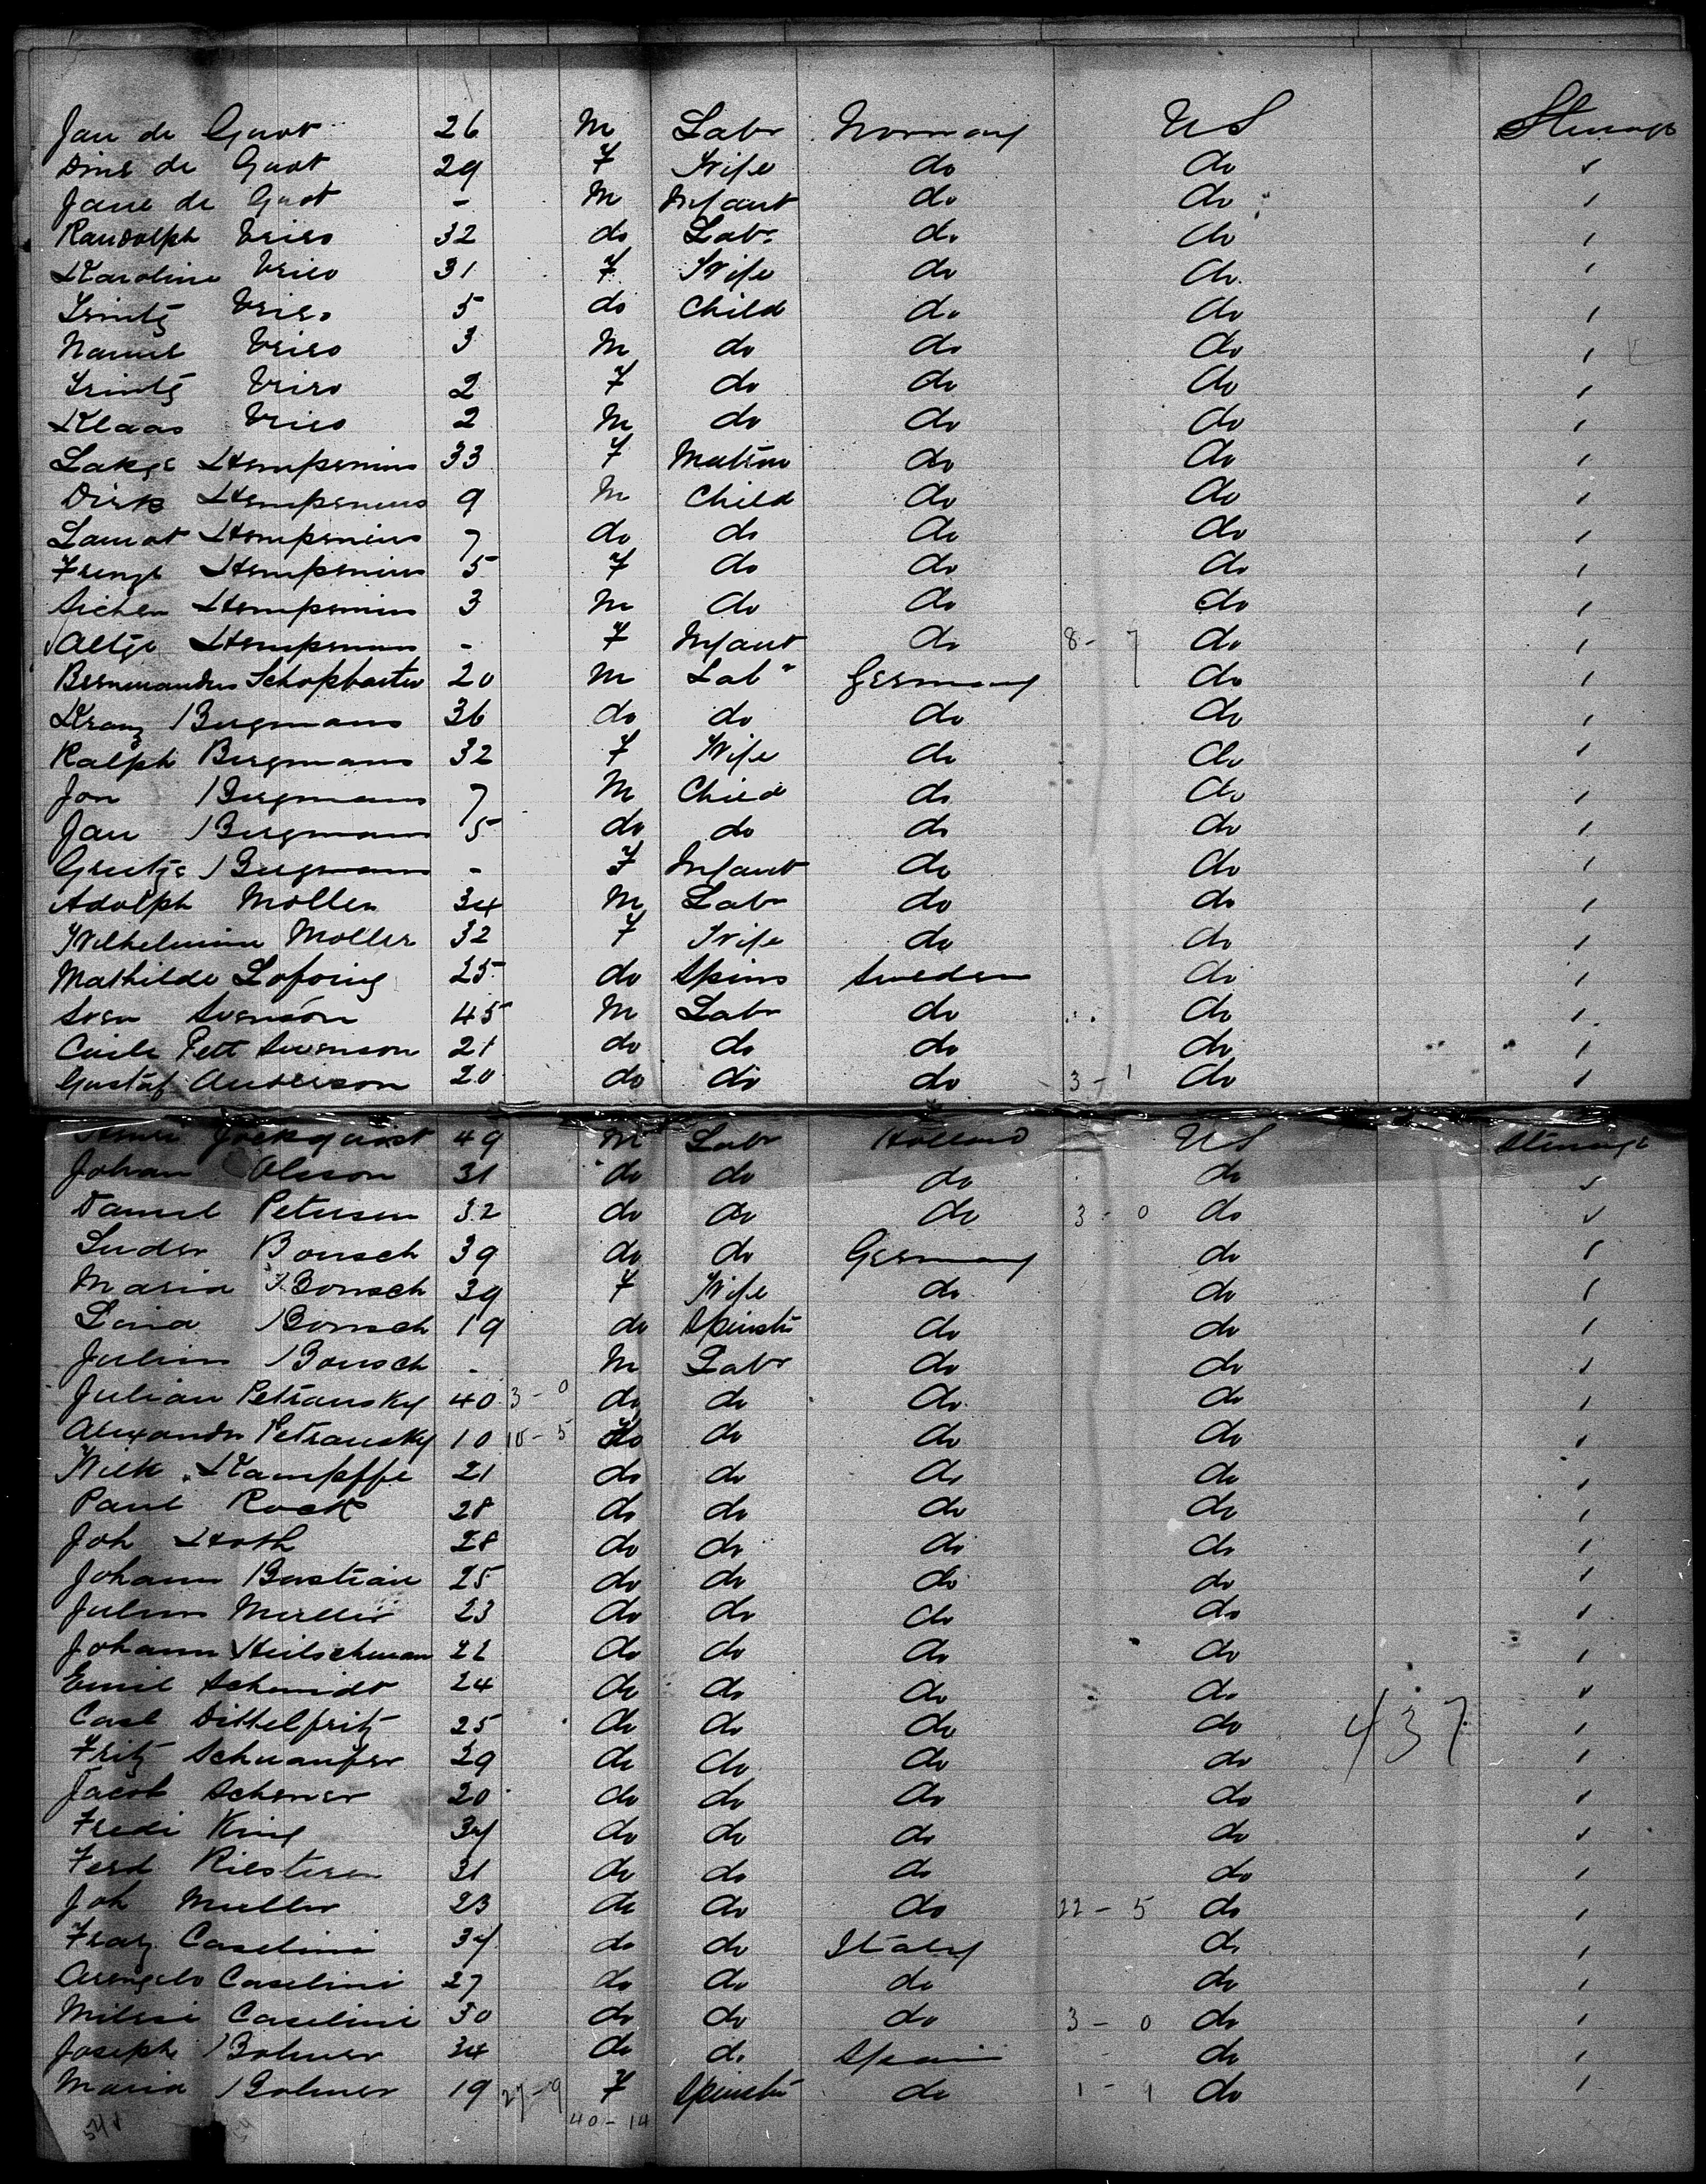 Jan de Groot 26 M Labr Norway US Steerage
Dins de Groot 29 F Wife do do
Jane de Groot - M Infant do do
Randolph Vries 32 do Labr do do
Karoline Vries 31 F Wife do do
Vries 5 do Child do do
Vries 3 M do do do
Vries 2 F do do do
Klaas Vries 2 M do do do
Hempenius 33 F Matron do do
Dirk Hempenius 9 M Child do do
Hempenius 7 do do do do
Hempenius 5 F do do do
Hempenius 3 M do do do
Aeltje Hempenius - F Infant do 8 - 7 do
20 M Labr Germany do
Kranz Bergmans 36 do do do do
Ralph Bergmans 32 F Wife do do
Jon Bergmans 7 M Child do do
Jan Bergmans 5 do do do do
Greetje Bergmans - F Infant do do
Adolph Moller 34 M Labr do do
Wilhelmina Moller 32 F Wife do do
Mathilde 25 do Spins Sweden do
Sven Svenson 45 M Labr do do
Pett Swenson 21 do do do do
Gustaf Anderson 20 do do do 3 - 1 do
49 M Labr Holland US Steerage
Johan Oleson 31 do do do do
Daniel Petersen 32 do do do 3 - 0 do
Luder Bonsch 39 do do Germany do
Maria Bonsch 39 F Wife do do
Lina Bonsch 19 do Spinstr do do
Julius Bonsch - M Labr do do
Julian Petransky 40 3 - 0 do do do do
Alexander Petransky 10 10 - 5 do do do do
Kampffe 21 do do do do
Paul Rock 28 do do do do
Joh Hoth 28 do do do do
Johann Bastian 25 do do do do
Julius 23 do do do do
Johann 22 do do do do
Emil Schmidt 24 do do do do
Carl Dittelfritz 25 do do do do 437
Fritz 29 do do do do
Jacob 20 do do do do
Fredr King 34 do do do do
Ferd Riesterer 31 do do do do
Joh Muller 23 do do do 22 - 5 do
Franz Caselini 34 do do Italy do
Caselini 27 do do do do
Caselini 30 do do do 3 - 0 do
Joseph Bolmer 34 do do Spain do
Maria Bolmer 19 27 - 9 F Spinstr do 1 - 9 do
40 - 14